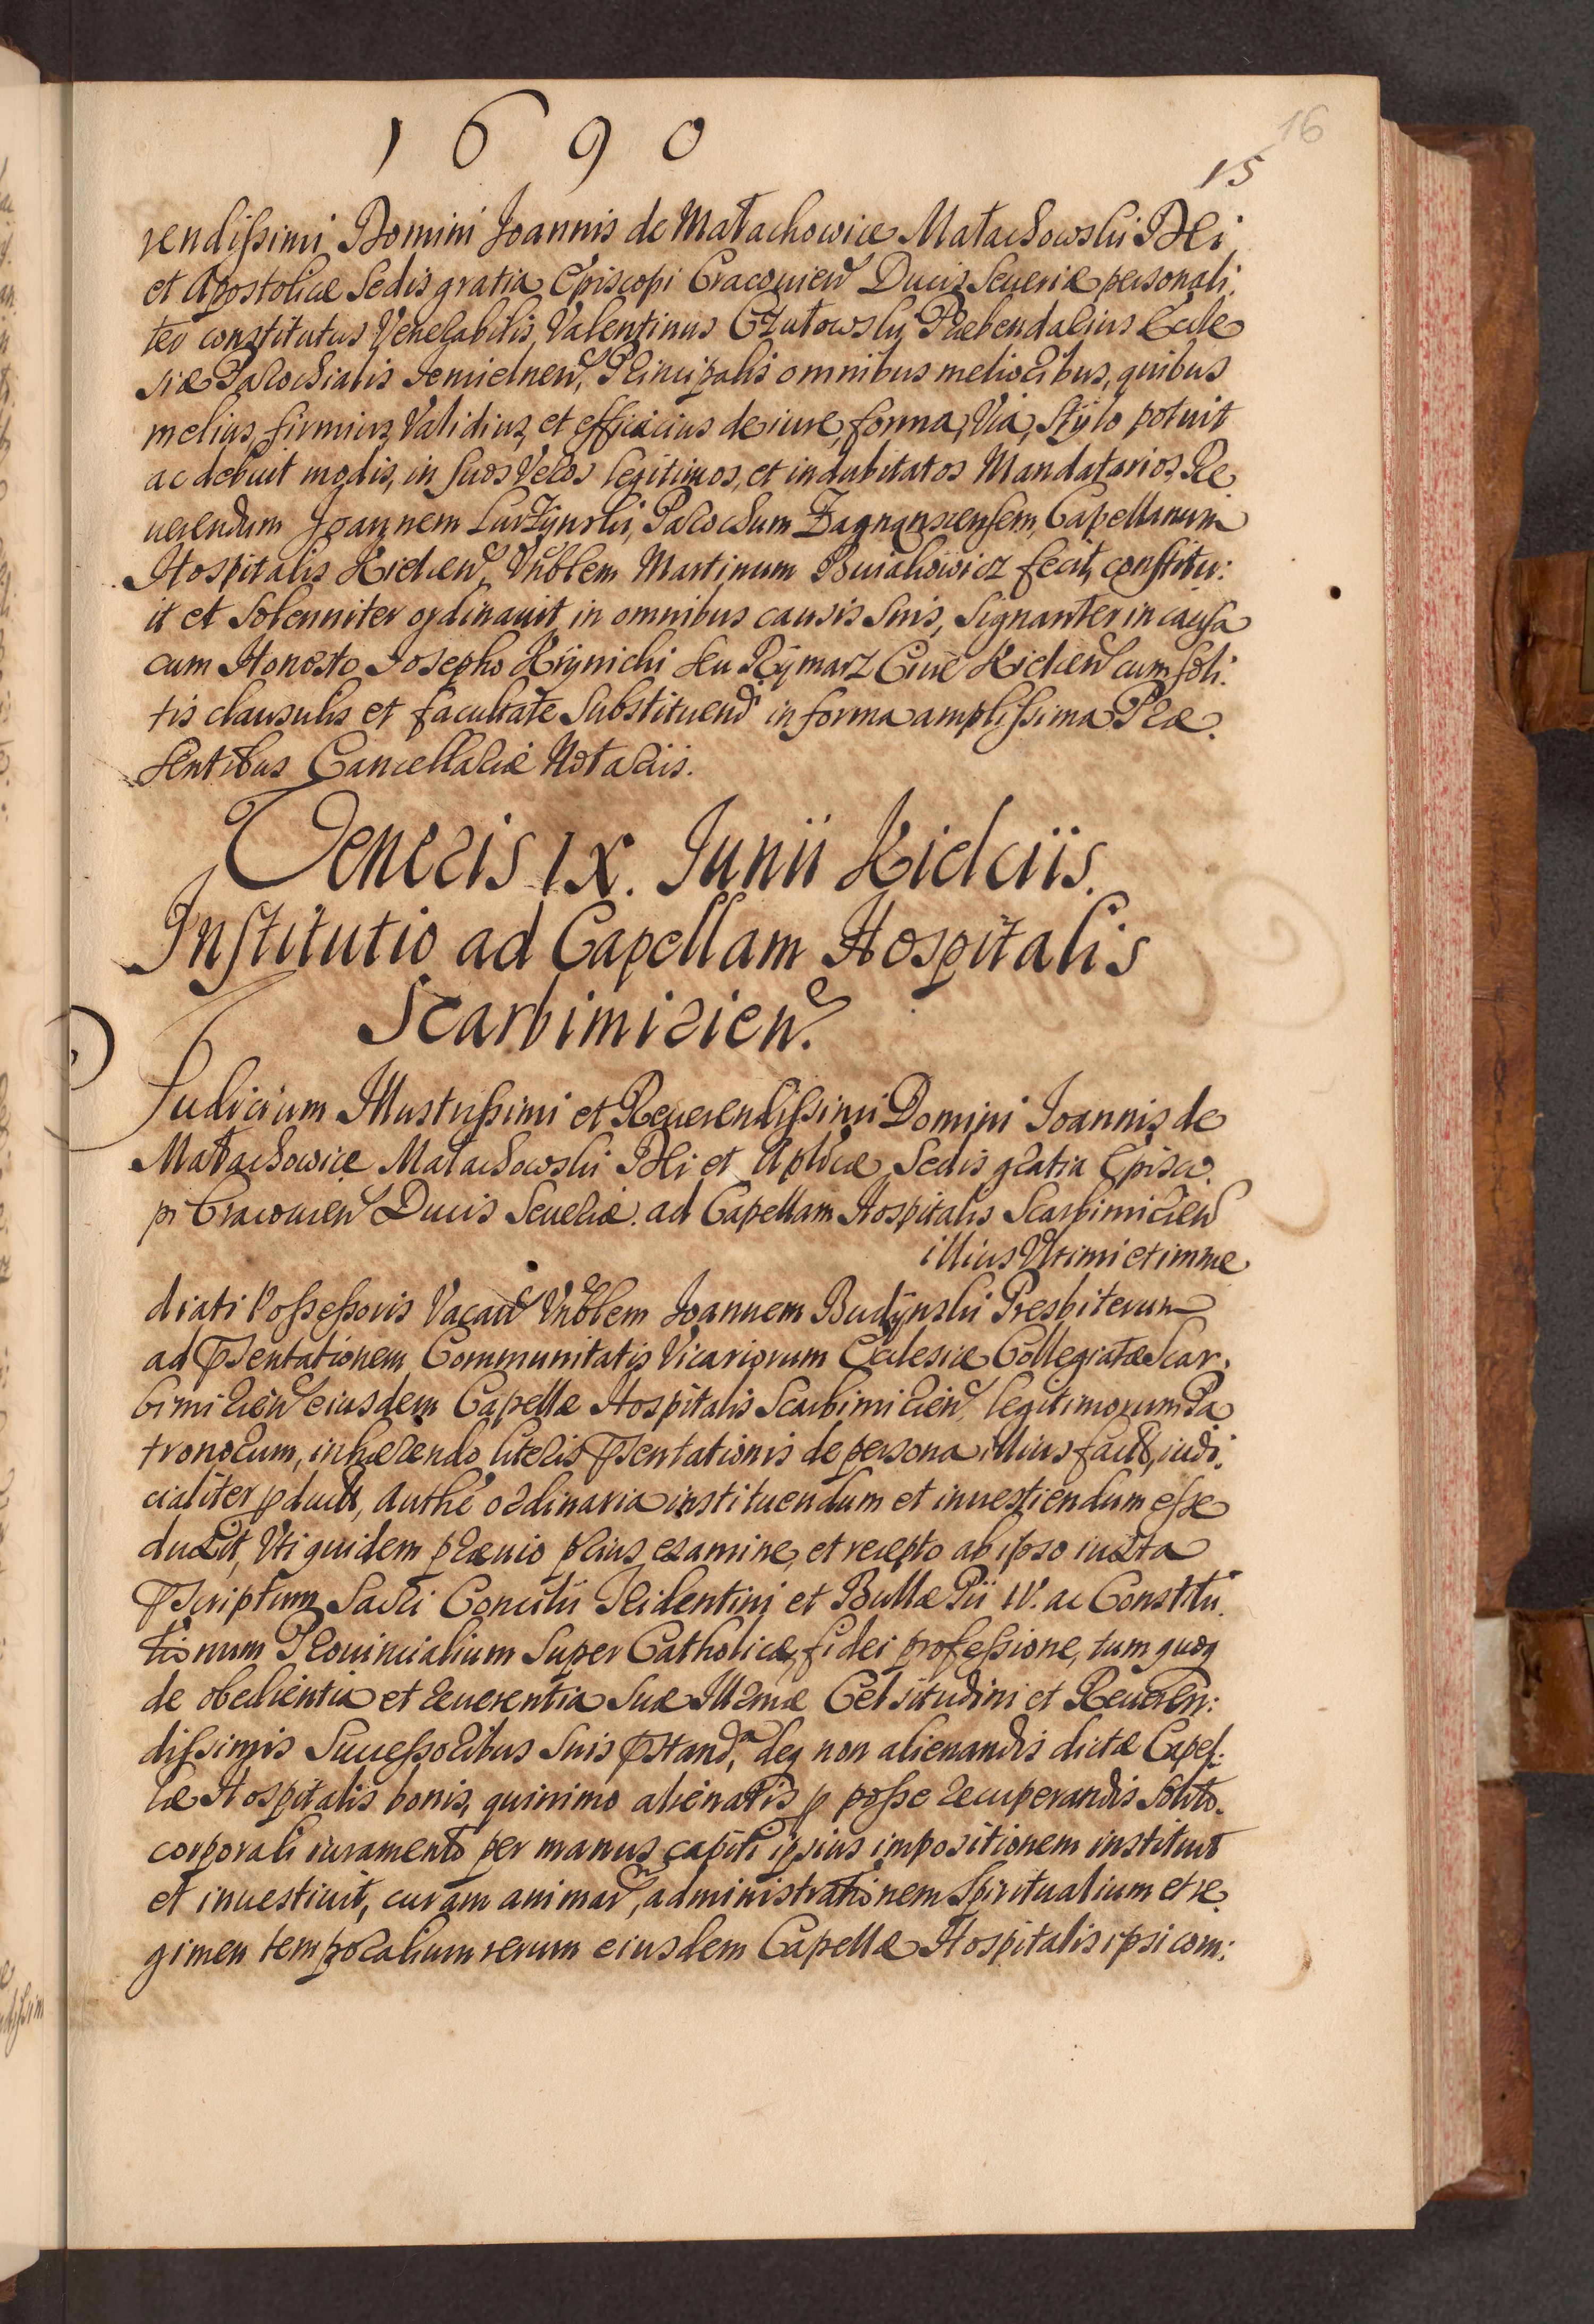 1690
16
15
rendissimi Domini Joannis de Małachowice Małachowski DEi
et Apostolicæ Sedis gratia Episcopi Cracovien Ducis Seueriæ personali:
ter constitutus Venerabilis Valentinus Czutowsky Præbendarius Eccle
siæ Parochialis Principalis omnibus melioribus, quibus
melius, firmius, Validius, et efficacius de iure, forma, Via, Stylo potuit
ac debuit modis, in suos Veros legitimos, et indubitatos Mandatarios, Re
uerendum Joannem Parochum Zagnanscensem, Capellanum
Hospitalis Kielcen, Vnblem Martinum fecit, constitu:
it et Solenniter ordinauit, in omnibus causis Suis, Signanter in causa
cum Honesto Josepho seu Rymarz Ciue Kielcen cum soli:
tis clausulis et facultate Substituendi in forma amplissima Præ
sentibus Cancellariæ Notariis.
Veneris IX. Junii Kielciis.
Institutio ad Capellam Hospitalis
Scarbimirien.
Judicium Illustrissimi et Reuerendissimi Domini Joannis de
Małachowice Małachowski DEi et Aplicæ Sedis gratia Episco:
pi Cracouien Ducis Seueriæ. ad Capellam Hospitalis Scarbimirien
illius Vltimi et imme
diati Possessoris Vacan Vnblem Joannem Budynski Presbiterum
ad Psentationem Communitatis Vicariorum Ecclesiæ Collegiatæ Scar:
bimirien eiusdem Capellæ Hospitalis Scarbimirien legitimorum Pa
tronorum, inhærendo literis Psentationis de persona illius factis, iudi:
cialiter pductis, Authe ordinaria instituendum et inuestiendum esse
duxit, Vti quidem præuio prius examine, et recepto ab ipso iuxta
Pscriptum Sacri Concilii Tridentini et Bullæ Pii IV. ac Constitu:
tionum Prouincialium Super Catholicæ fidei professione, tum quoq
de obedientia et reuerentia Suæ Illmæ Celsitudini et Reueren:
dissimis Successoribus Suis Pstanda, deq non alienandis dictæ Capel:
læ Hospitalis bonis, quinimo alienatis p posse recuperandis Solito
corporali iuramento per manus capiti ipsius impositionem instituit
et inuestiuit, curam animar, administrationem Spiritualium et re
gimen temporalium rerum eiusdem Capellæ Hospitalis ipsi com: